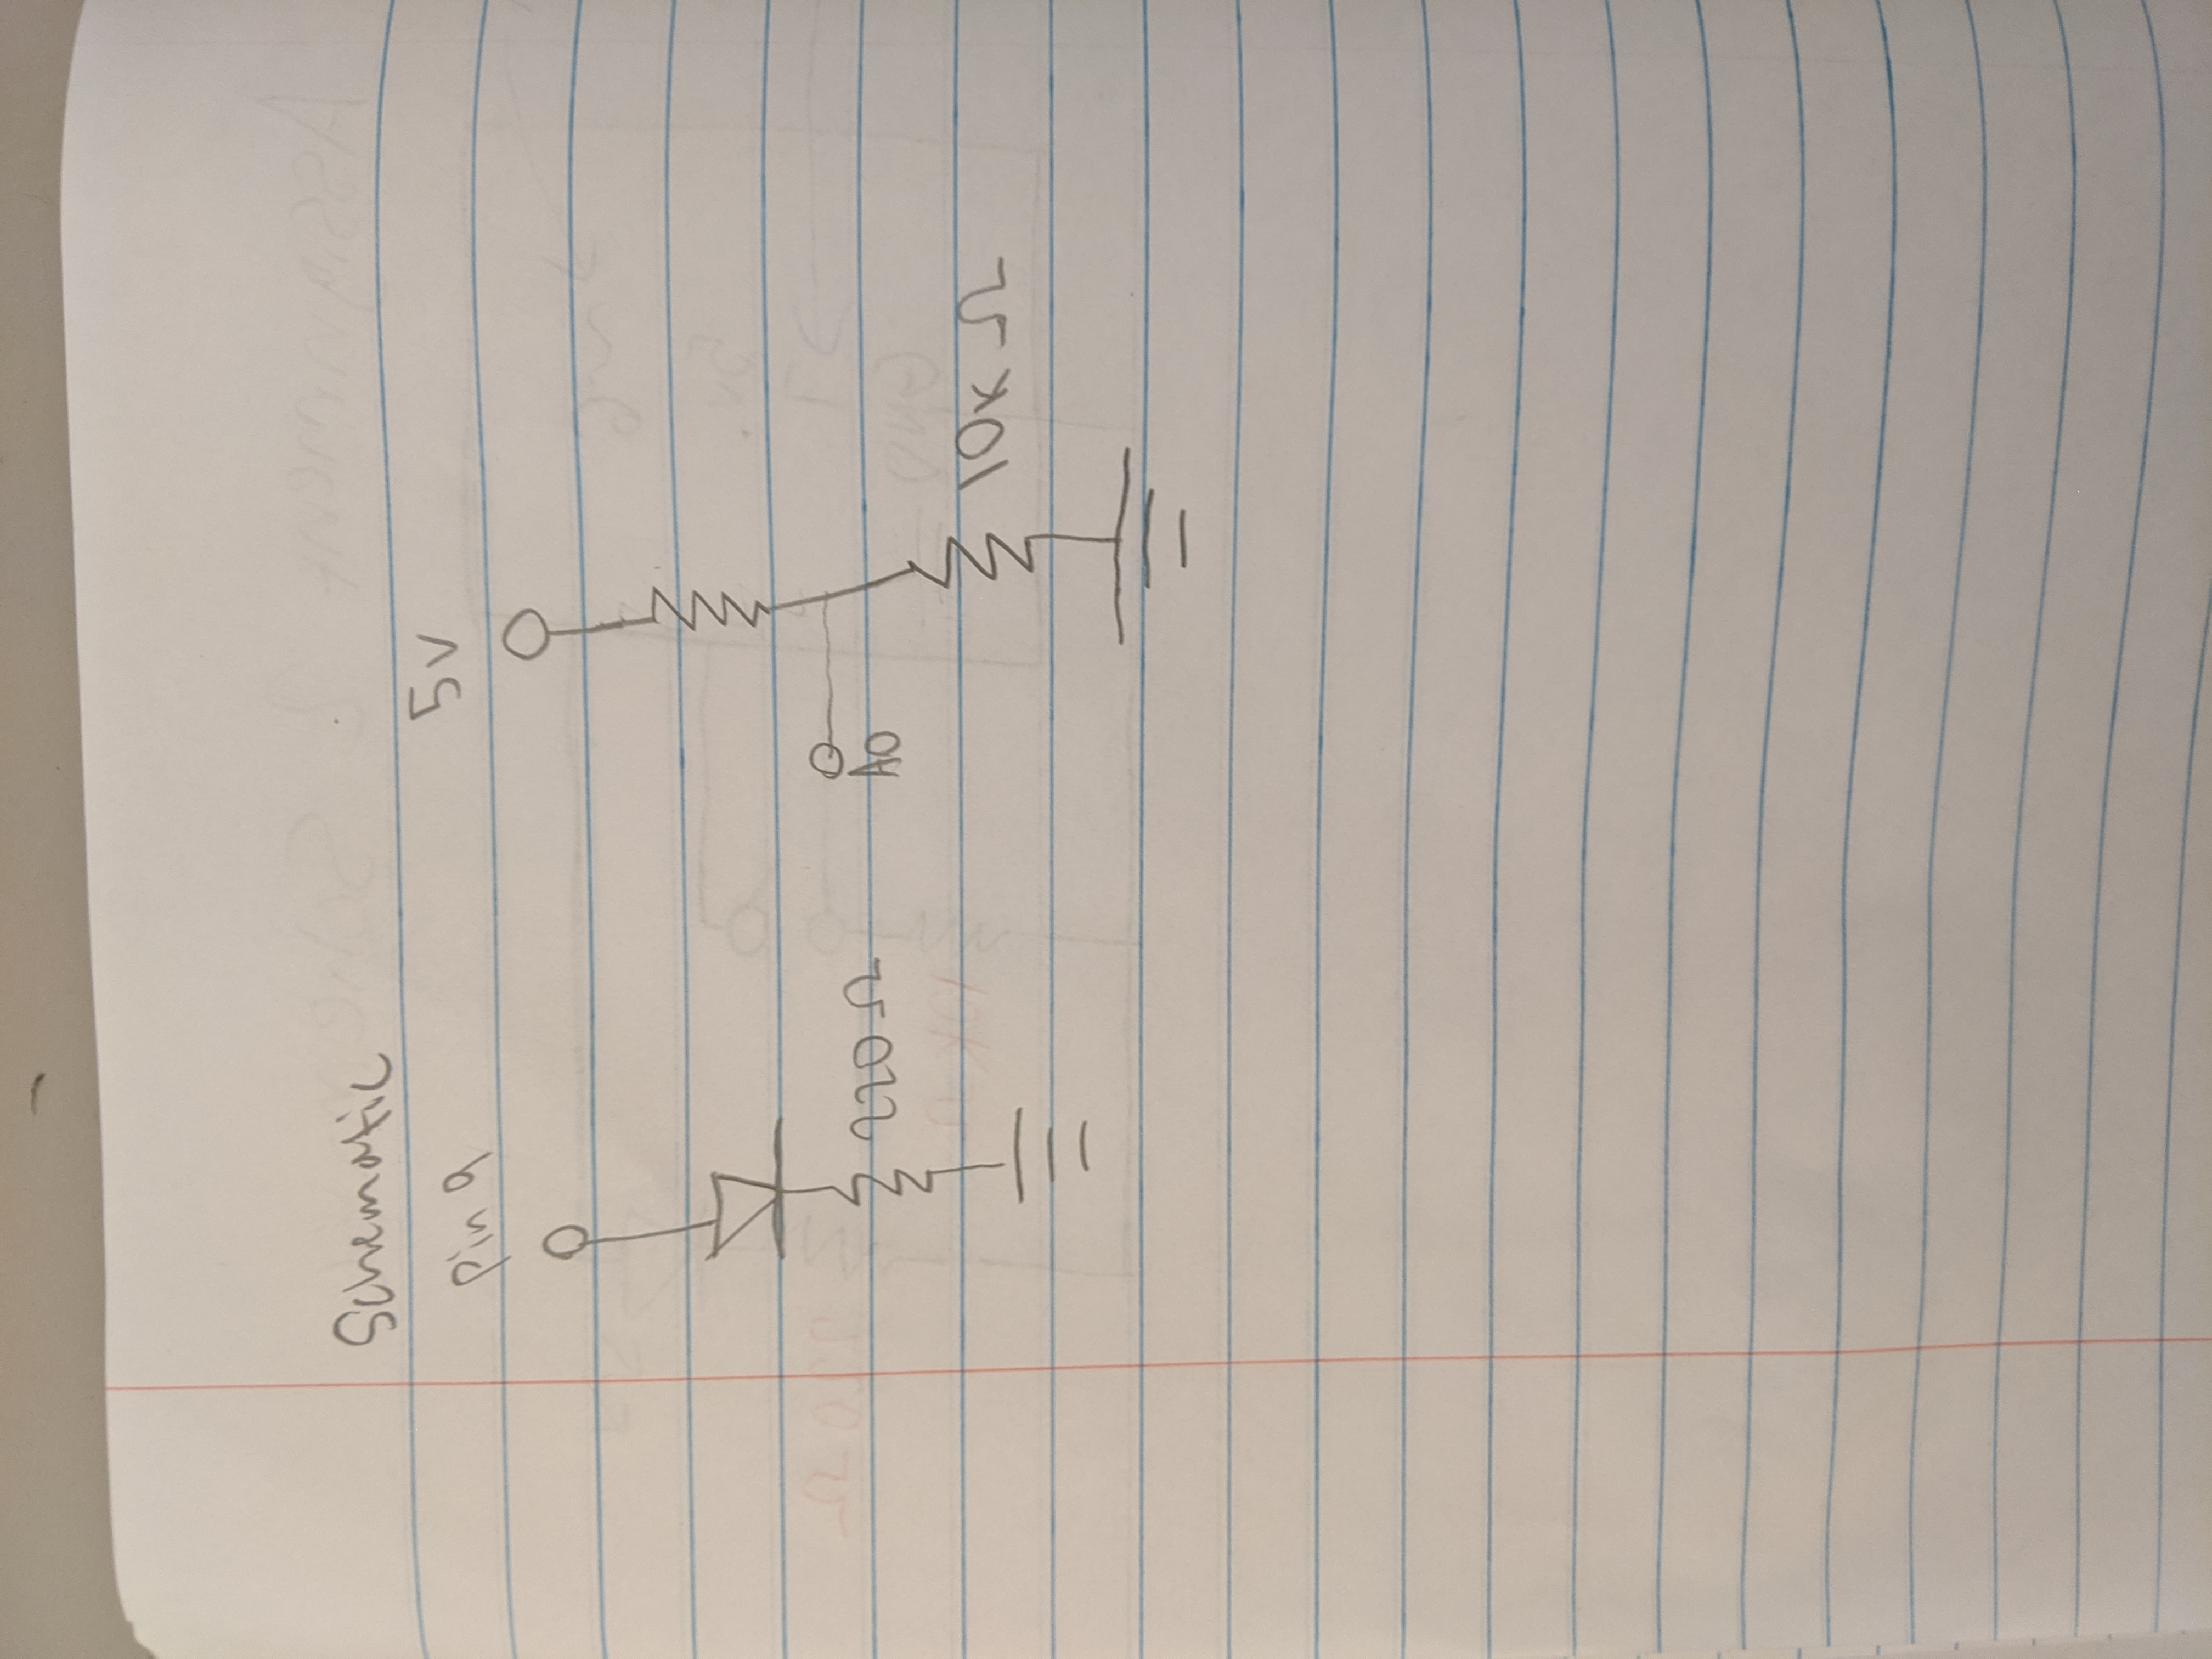 Schematic
Pin 9
5V
220 Ω
A0
10K Ω